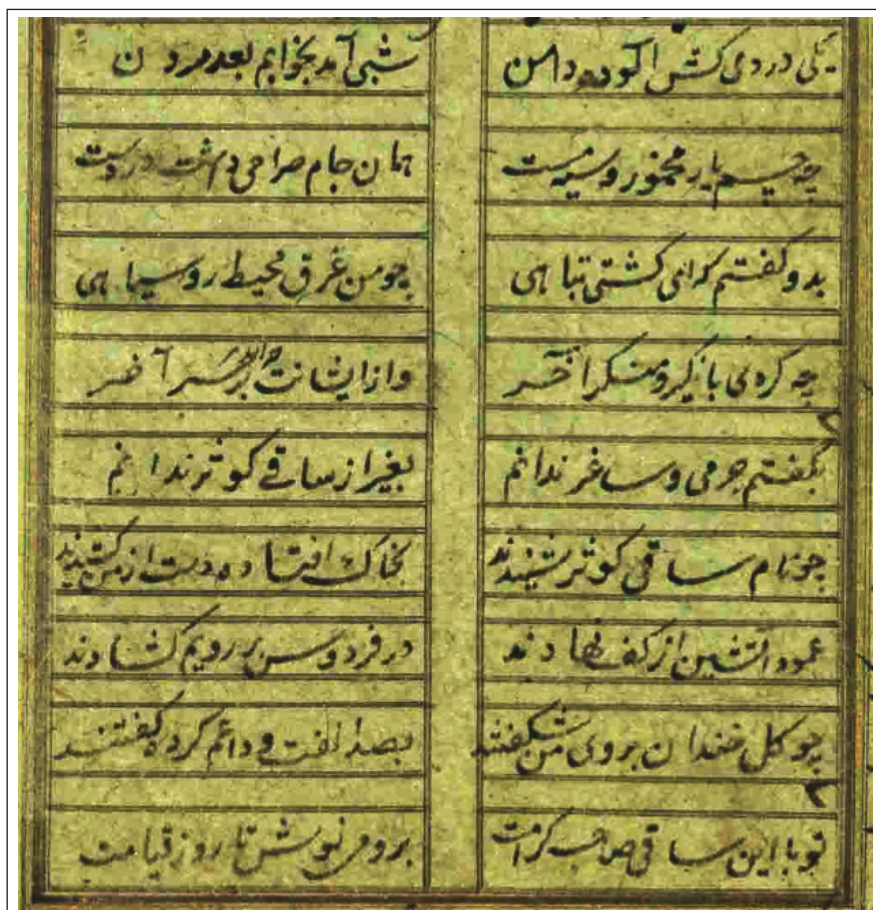 یکی دردی کش الوده دامن شبی آمد بخوابم بعد مردن
چه چشم یار مخمور و سیه مست همان جام صراحی داشت در دست
بدو کفتم که ای کشتی تباهی چو من غرق محیط روسیاهی
چه کردی با نکیر و منکر آخر واز ایشانت بر سر آخر
بکفتم جز می و ساغر ندانم بغیر از ساقی کوثر ندانم
چو نام ساقی کوثر شنیدند بخاک افتاده دست از من کشیدند
عمود اتشین از کف نهادند در فردوس بر رویم کشادند
چو کل خندان بروی من شکفتند بصد الفت وداعم کرده کفتند
تو با این ساقی صاحب کرامت برو می نوش تا روز قیامت